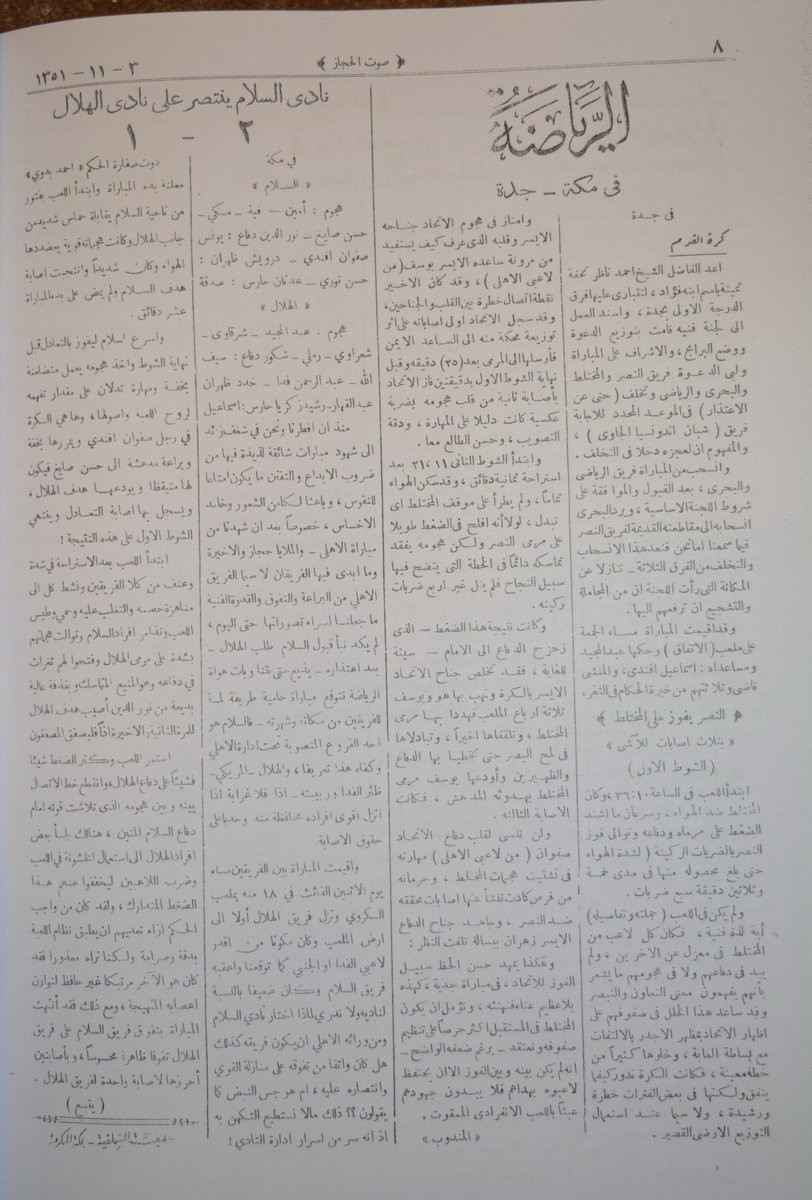 ٨
﴿ صوت الحجاز ﴾
٣ – ١١ – ١٣٥١
الرياضة
في مكة – جدة
في جدة
كرة القدم
اعد الفاضل الشيخ احمد ناظر تحفة
ثمينة باسم ابنه فؤاد ، لتتبارى عليها فرق
الدرجة الاولى بجدة ، واسند العمل
الى لجنة فنية قامت بتوزيع الدعوة
ووضع البرامج ، والاشراف على المباراة
ولبى الدعوة فريق النصر والمختلط
والبحرى والرياضى وتخلف ( حتى عن
الاعتذار ) فى الموعد المحدد للاجابة
فريق ( شبان اندونسيا الجاوى ) ،
والمفهوم ان لعجزه دخلا فى التخلف .
وانسحب من المباراة فريق الرياضى
والبحرى ، بعد القبول والموافقة على
شروط اللجنة الاساسية ، ويرد البحرى
انسحابه الى مقاطعته القديمة لفريق النصر
فيما سمعنا اما نحن فنعد هذا الانسحاب
والتخلف من الفرق الثلاثة – تنازلا عن
المكانة التى رأت اللجنة ان من المجاملة
والتشجيع ان ترفعهم اليها .
وقد اقيمت المباراة مساء الجمعة
على ملعب ( الاتفاق ) وحكمها عبد المجيد
ومساعداه : اسماعيل افندى ، والمنشى
قاضى وثلاثتهم من خيرة الحكام فى الثغر .
﴿ النصر يفوز على المختلط ﴾
« بثلاث اصابات للاشى »
( الشوط الاول )
ابتدأ اللعب فى الساعة ٣٦،١٠ ، وكان
المختلط ضد الهواء ، وسرعان ما اشتد
الضغط على مرماه ودفاعه وتوالى فوز
النصر بالضربات الركينة ( لشدة الهواء
حتى بلغ محصوله منها فى مدى خمسة
وثلاثين دقيقة سبع ضربات .
ولم يكن فى اللعب ( جملته وتفاصيله )
أية لذة فنية ، فكان كل لاعب من
المختلط فى معزل عن الاخرين ، ولم
يبد فى دفاعهم ولا فى هجومهم ما يشعر
بأنهم يفهمون معنى التعاون والتبصر
وقد ساعد هذا الخلل فى صفوفهم على
اظهار الاتحاد بمظهر الاجدر بالالتفات
مع بساطة العابة ، وخلوها كثيراً من
خطة معينة ، فكانت الكرة تدور كيفما
يتفق ولكنها فى بعض الفترات خطرة
ورشيدة ، ولا سيما عند استعمال
التوزيع الارضى القصير .
وامتاز فى هجوم الاتحاد جناحه
الايسر وقلبه الذى عرف كيف يستفيد
من مرونة ساعده الايسر يوسف ( من
لاعبى الاهلى ) ، وقد كان الاخير
نقطة اتصال خطرة بين القلب والجناحين ،
وقد سجل الاتحاد اولى اصاباته على اثر
توزيعة محكمة منه الى الساعد الايمن
فأرسلها الى المرمى بعد (٣٥) دقيقة وقبل
نهاية الشوط الاول بدقيقتين فاز الاتحاد
بأصابة ثانية من قلب هجومه بضربة
عكسية كانت دليلا على المهارة ، ودقة
التصويب ، وحسن الطالع معا .
وابتدأ الشوط الثانى ١١ ٢١، بعد
استراحة ثمانية دقائق ، وقد سكن الهواء
تماماً ، ولم يطرأ على موقف المختلط اى
تبدل ، لولا أنه افلح فى الضغط طويلا
على مرمى النصر ولكن هجومه يفقد
تماسكه دائماً فى الخطة التى يتضح فيها
سبيل النجاح فلم ينل غير اربع ضربات
ركينه .
وكانت نتيجة هذا الضغط – الذى
زحزح الدفاع الى الامام – سيئة
للغاية ، فقد تخلص جناح الاتحاد
الايسر بالكرة ونهب بها هو ويوسف
ثلاثة ارباع الملعب فهددا بها مرمى
المختلط ، وتلقفاها اخيراً ، وتبادلاها
فى لمح البصر حتى تخطيا بها الدفاع
والظهيرين وأودعها يوسف مرمى
المختلط بهدوئه المدهش ، فكانت
الاصابة الثالثه .
ولن ننسى لقلب دفاع الاتحاد
صفوان ( من لاعبى الاهلى ) مهارته
فى تشتيت هجمات المختلط ، وحرمانه
من فرص كادت تنشأ عنها اصابات محققه
ضد النصر ، وجاهد جناح الدفاع
الايسر زهران ببسالة تلفت النظر :
وهكذا يمهد حسن الحظ سبيل
الفوز للاتحاد ، فى مباراة جدية ، كهذه
بلا عظيم عناء فنهنئه ، ونؤمل ان يكون
المختلط فى المستقبل اكثر حرصاً على تنظيم
صفوفه ونعتقد – برغم ضعفه الواضح –
انه لم يكن بينه وبين الفوز الا ان يحتفظ
لاعبوه بهدامهم فلا يبددون جهودهم
عبثاً باللعب الانفرادى الممقوت .
« المندوب »
نادى السلام ينتصر على نادى الهلال
٢ – ١
في مكة
« السلام »
هجوم : أمين – فية – مكي –
حسن صايغ – نور الدين دفاع : يونس
صفوان افندي – درويش ظهران :
حسن نوري – عدنان حارس : صدقة
« الهلال »
هجوم : عبد المجيد – شرقاوى –
شعراوي – رملي – شكور دفاع : سيف
الله – عبد الرحمن فدا – خدد ظهران
عبد القهار – رشيد زكريا حارس : اسماعيل
منذ ان افطرنا ونحن في شغف زائد
الى شهود مبارات شائقة لذيذة فيها من
ضروب الابداع والتفنن ما يكون امتاعا
للنفوس ، وباعثا لكامن الشعور وخامد
الاحساس ، خصوصاً بعد ان شهدنا من
مباراة الاهلى – والملايا حجاز والاخيرة
وما ابدى فيها الفريقان لا سيما الفريق
الاهلي من البراعة والتفوق والقدرة الفنية
ما جعلنا اسراء تصوراتها حتى اليوم ،
لم يكد نبأ قبول السلام طلب الهلال –
بعد اعتذاره – يذيع حتى بتنا وبات هواة
الرياضة نتوقع مباراة حامية طريفة لما
للفريقين من مكانة وشهرته – فالسلام هو
احد الفروع المنضوية تحت ادارة الاهلي
وكفاه هذا تعريفا ، والهلال – المريكي –
ظئر الفدا وربيبته – اذا فلا غرابة اذا
انزل اقوى افراده محافظة منه وحدبا على
حقوق الاصابة .
واقيمت المباراة بين الفريقين مساء
يوم الاثنين الفائت في ١٨ منه بملعب
السكروي ونزل فريق الهلال أولا الى
ارض الملعب وكان مكونا من اقدر
لاعبي الفدا او الجنبي كما توقعنا واعقبه
فريق السلام وكان ضعيفا بالنسبة
لناديه ولا ندري لماذا اختار نادي السلام
ومن ورائه الاهلي ان يكون فريقه كذلك
هل كان واثقا من تفوقه على منازله القوي
وانتصاره عليه ، ام هو جس النبض كما
يقولون ؟؟ ذلك مالا نستطيع التكهن به
اذ انه سر من اسرار ادارة النادي !
دوت صفارة الحكم « احمد بدوي »
معلنة بدء المباراة وابتدأ اللعب بفتور
من ناحية السلام يقابله حماس شديد من
جانب الهلال وكانت هجماته قوية يعضدها
الهواء وكان شديداً وانتجت اصابة
هدف السلام ولم يمض على بدء المباراة
عشر دقائق .
واسرع اسلام ليفوز بالتعادل قبل
نهاية الشوط واخذ هجومه يعمل متضامنة
بخفة ومهارة تدلان على مقدار تفهمه
لروح اللعبة واصولها ، وها هي الكرة
في رجل صفوان افندي ويمررها بخفة
وبراعة مدهشة الى حسن صايغ فيكون
لها متيقظا ويودعها هدف الهلال ،
ويسجل بها اصابة التعادل وينتهي
الشوط الاول على هذه النتيجة !
ابتدأ اللعب بعد الاستراحة في شدة
وعنف من كلا الفريقين ونشط كل الى
مناجزة خصمه والتغلب عليه وحمي وطيس
اللعب وتذامر افراد السلام وتوالت هجماتهم
بشدة على مرمى الهلال وفتحوا لهم ثغرات
في دفاعه وهو المنيع المتماسك وبقذفة عالية
بديعة من نور الدين أصيب هدف الهلال
للمرة الثانية والاخيرة اذاً فليصفق المصفقون
استمر اللعب وكثر الضغط شيئا
فشيئاً على دفاع الهلال ، وانقطع خط الاتصال
بينه وبين هجومه الذى تلاشت قوته امام
دفاع السلام المتين ، هنالك لجأ بعض
افراد الهلال الى استعمال الخشونة في اللعب
وضرب اللاعبين ليخففوا عنهم هذا
الضغط المتدارك ، ولقد كان من واجب
الحكم ازاء تعديهم ان يطبق نظام اللعبة
بدقة وصرامة ولكننا نراه معذورا فقد
كان هو الآخر مرتبكا غير حافظ لتوازن
اعصابه المتهيجة ، ومع ذلك فقد أنتهت
المباراة بتفوق فريق السلام على فريق
الهلال تفوقا ظاهرا محسوساً ، وبأصابتين
أحرزها لاصابة واحدة لفريق الهلال .
( يتبع )
المطبعة السلفية – بمكة المكرمة